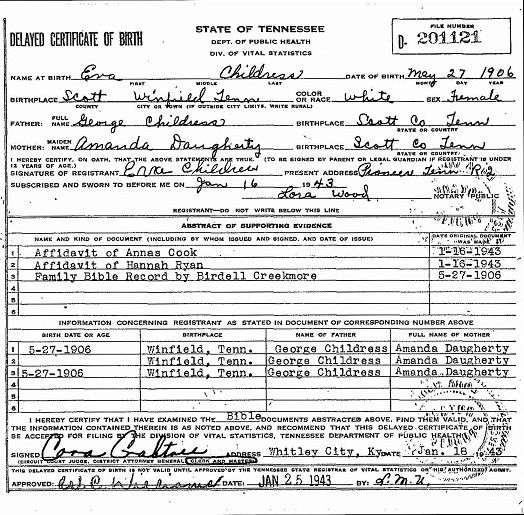 DELAYED CERTIFICATE OF BIRTH
STATE OF TENNESSEE
DEPT. OF PUBLIC HEALTH
DIV. OF VITAL STATISTICS
FILE NUMBER
D. 201121
NAME AT BIRTH Eva Childress DATE OF BIRTH May 27 1906
FIRST MIDDLE LAST MONTH DAY YEAR
BIRTHPLACE Scott Winfield Tenn COLOR OR RACE White SEX Female
COUNTY CITY OR TOWN (IF OUTSIDE CITY LIMITS, WRITE RURAL)
FATHER: FULL NAME George Childress BIRTHPLACE Scott Co Tenn
STATE OR COUNTRY
MOTHER: MAIDEN NAME Amanda Daugherty BIRTHPLACE Scott Co Tenn
STATE OR COUNTRY
I HEREBY CERTIFY, ON OATH, THAT THE ABOVE STATEMENTS ARE TRUE. (TO BE SIGNED BY PARENT OR LEGAL GUARDIAN IF REGISTRANT IS UNDER
12 YEARS OF AGE.)
SIGNATURE OF REGISTRANT Eva Childress PRESENT ADDRESS Pioneer Tenn
SUBSCRIBED AND SWORN TO BEFORE ME ON Jan 16 1943
Lora Wood
NOTARY PUBLIC
REGISTRANT—DO NOT WRITE BELOW THIS LINE
ABSTRACT OF SUPPORTING EVIDENCE
NAME AND KIND OF DOCUMENT (INCLUDING BY WHOM ISSUED AND SIGNED, AND DATE OF ISSUE) DATE ORIGINAL DOCUMENT WAS MADE
1 Affidavit of Annas Cook 1-16-1943
2 Affidavit of Hannah Ryan 1-16-1943
3 Family Bible Record by Birdell Creekmore 5-27-1906
4
5
6
INFORMATION CONCERNING REGISTRANT AS STATED IN DOCUMENT OF CORRESPONDING NUMBER ABOVE
BIRTH DATE OR AGE BIRTHPLACE NAME OF FATHER FULL NAME OF MOTHER
1 5-27-1906 Winfield, Tenn. George Childress Amanda Daugherty
2 Winfield, Tenn. George Childress Amanda Daugherty
3 5-27-1906 Winfield, Tenn. George Childress Amanda Daugherty
4
5
6
I HEREBY CERTIFY THAT I HAVE EXAMINED THE Bible DOCUMENTS ABSTRACTED ABOVE, FIND THEM VALID, AND THAT
THE INFORMATION CONTAINED THEREIN IS AS NOTED ABOVE, AND RECOMMEND THAT THIS DELAYED CERTIFICATE OF BIRTH
BE ACCEPTED FOR FILING BY THE DIVISION OF VITAL STATISTICS, TENNESSEE DEPARTMENT OF PUBLIC HEALTH.
SIGNED Cora Crabtree ADDRESS Whitley City, Ky. DATE Jan. 18 1943
(CIRCUIT COURT JUDGE, DISTRICT ATTORNEY GENERAL, CLERK AND MASTER)
THIS DELAYED CERTIFICATE OF BIRTH IS NOT VALID UNTIL APPROVED BY THE TENNESSEE STATE REGISTRAR OF VITAL STATISTICS OR HIS AUTHORIZED AGENT.
APPROVED: DATE: JAN 25 1943 BY: